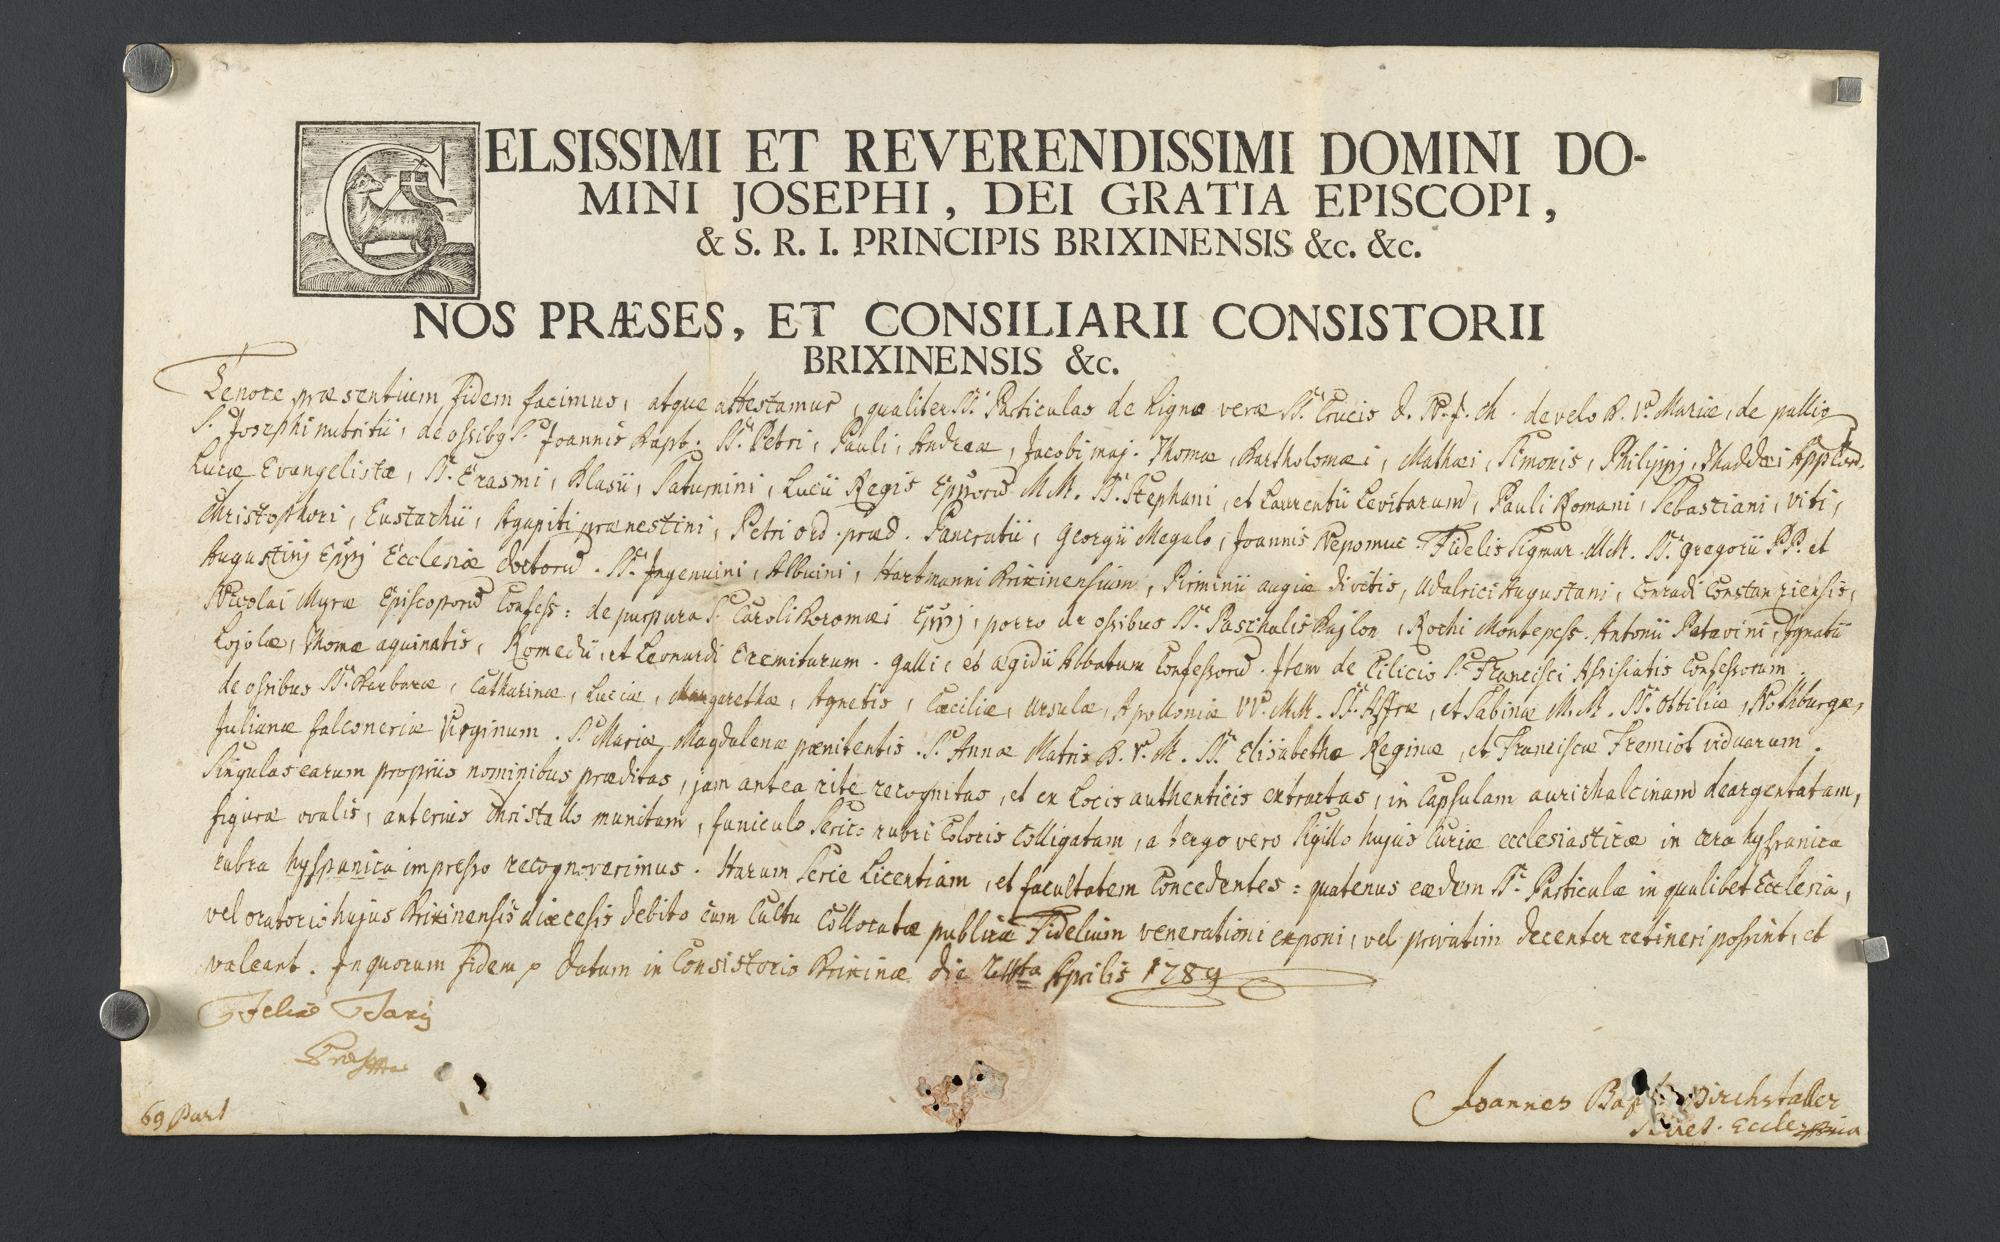 CELSISSIMI ET REVERENDISSIMI DOMINI DO-
MINI JOSEPHI, DEI GRATIA EPISCOPI,
& S. R. I. PRINCIPIS BRIXINENSIS &c. &c.
NOS PRÆSES, ET CONSILIARII CONSISTORII
BRIXINENSIS &c.
Tenore præsentium fidem facimus, atque attestamur, qualiter SS. Particulas de Ligno veræ SS. Crucis D. N. J. Ch. de velo B. V. Mariæ, de pallio
S. Josephi nutritii, de ossibus S. Joannis Bapt. SS. Petri, Pauli, Andreæ, Jacobi maj. Thomæ, Bartholomæi, Mathæi, Simonis, Philippi, Thaddæi
Lucæ Evangelistæ, SS. Erasmi, Blasii, Saturnini, Lucii Regis MM. SS. Stephani, et Laurentii Levitarum, Pauli Romani, Sebastiani, Viti,
Christophori, Eustachii, Agapiti prænestini, Petri ord. præd. Pancratii, Georgii Megalo, Joannis Nepomuc. Fidelis Sigmar. MM. SS. Gregorii PP. et
Augustini Ecclesiæ doctorum. SS. Ingenuini, Albuini, Hartmanni Brixinensium, Pirminii augiæ divitis, Udalrici Augustani, Conradi Constanziensis,
Nicolai Myræ Episcoporum Confess: de purpura S. Caroli Boromæi porro de ossibus SS. Paschalis Bajlon, Rochi Montepess. Antonii Patavini, Ignatii
Lojolæ, Thomæ aquinatis, Romedii, et Leonardi Eremitarum. Galli, et ægidii Abbatum Confessorum. Item de Cilicio S. Francisci Assisiatis Confessorum.
de ossibus SS. Barbaræ, Catharinæ, Luciæ, Margarethæ, Agnetis, Cæciliæ, Ursulæ, Apolloniæ VV. MM. SS. Affræ, et Sabinæ M.M. SS. Ottiliæ, Nothburgæ,
Julianæ falconeriæ Virginum. S. Mariæ Magdalenæ pænitentis. S. Annæ Matris B. V. M. SS. Elisabethæ Reginæ, et Franciscæ Fremiot viduarum.
Singulas earum propriis nominibus præditas, jam antea rite recognitas, et ex Locis authenticis extractas, in Capsulam aurichalcinam deargentatam,
figuræ ovalis, anterius Christallo munitam, funiculo Serico rubri Coloris Colligatam, a tergo vero Sigillo hujus Curiæ ecclesiasticæ in cera hyspanica
rubra hyspanica impresso recognoverimus. Harum Serie Licentiam, et facultatem Concedentes: quatenus eædem SS. Particulæ in qualibet Ecclesia,
vel oratorio hujus Brixinensis diæcesis debito cum Cultu Collocatæ publicæ Fidelium venerationi exponi, vel privatim decenter retineri possint, et
valeant. In quorum fidem Datum in Consistorio Brixinæ die Aprilis 1789
Felix
Præses
69 Part
Joannes Bapt. Kirchstaller